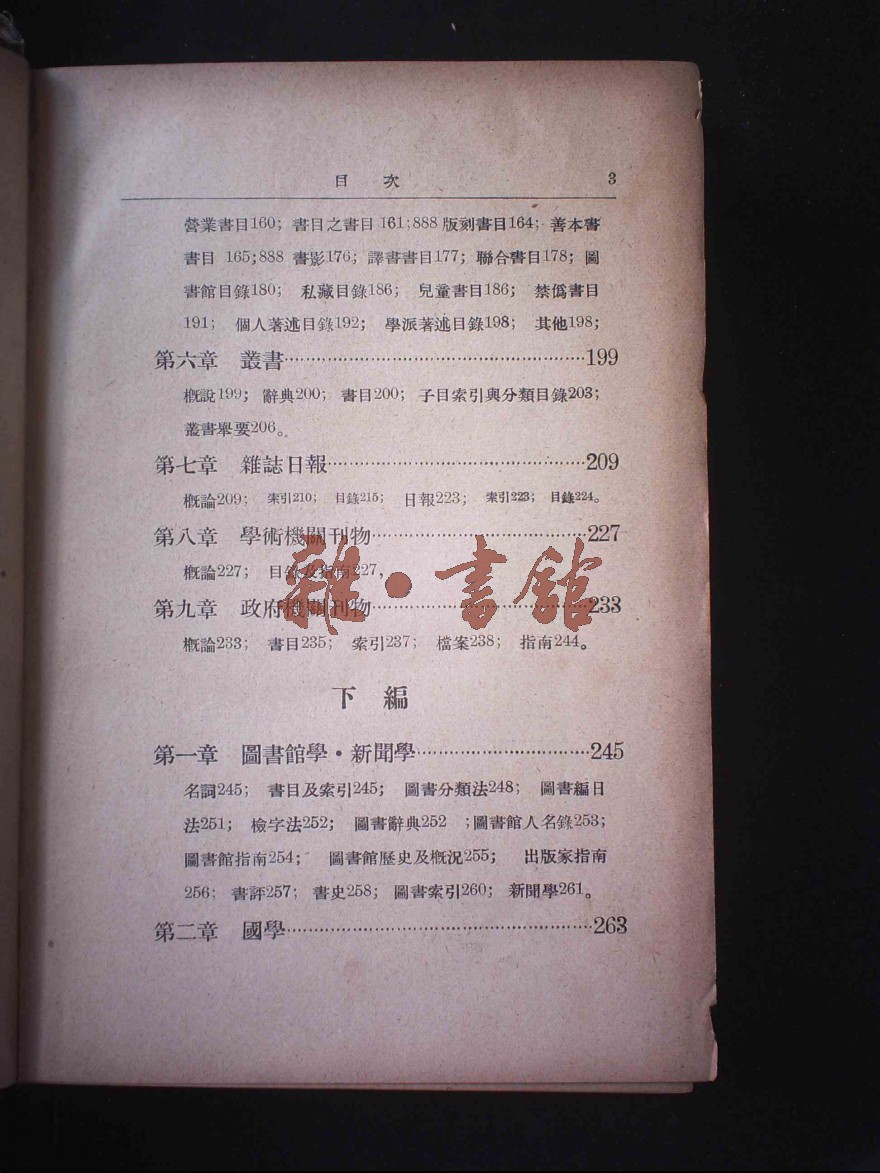 目 次 3
營業書目160; 書目之書目 161;888 版刻書目164; 善本書
書目 165;888 書影176; 譯書書目177; 聯合書目178; 圖
書館目錄180; 私藏目錄186; 兒童書目186; 禁僞書目
191; 個人著述目錄192; 學派著述目錄198; 其他198;
第六章 叢書……………………………………199
概說199; 辭典200; 書目200; 子目索引與分類目錄203;
叢書舉要206。
第七章 雜誌日報………………………………209
概論209; 索引210; 目錄215; 日報223; 索引223; 目錄224。
第八章 學術機關刊物…………………………227
概論227; 目錄及指南227,
第九章 政府機關刊物…………………………233
概論233; 書目235; 索引237; 檔案238; 指南244。
雜·書館
下 編
第一章 圖書館學·新聞學……………………245
名詞245; 書目及索引245; 圖書分類法248; 圖書編目
法251; 檢字法252; 圖書辭典252 ;圖書館人名錄253;
圖書館指南254; 圖書館歷史及概況255; 出版家指南
256; 書評257; 書史258; 圖書索引260; 新聞學261。
第二章 國學……………………………………263